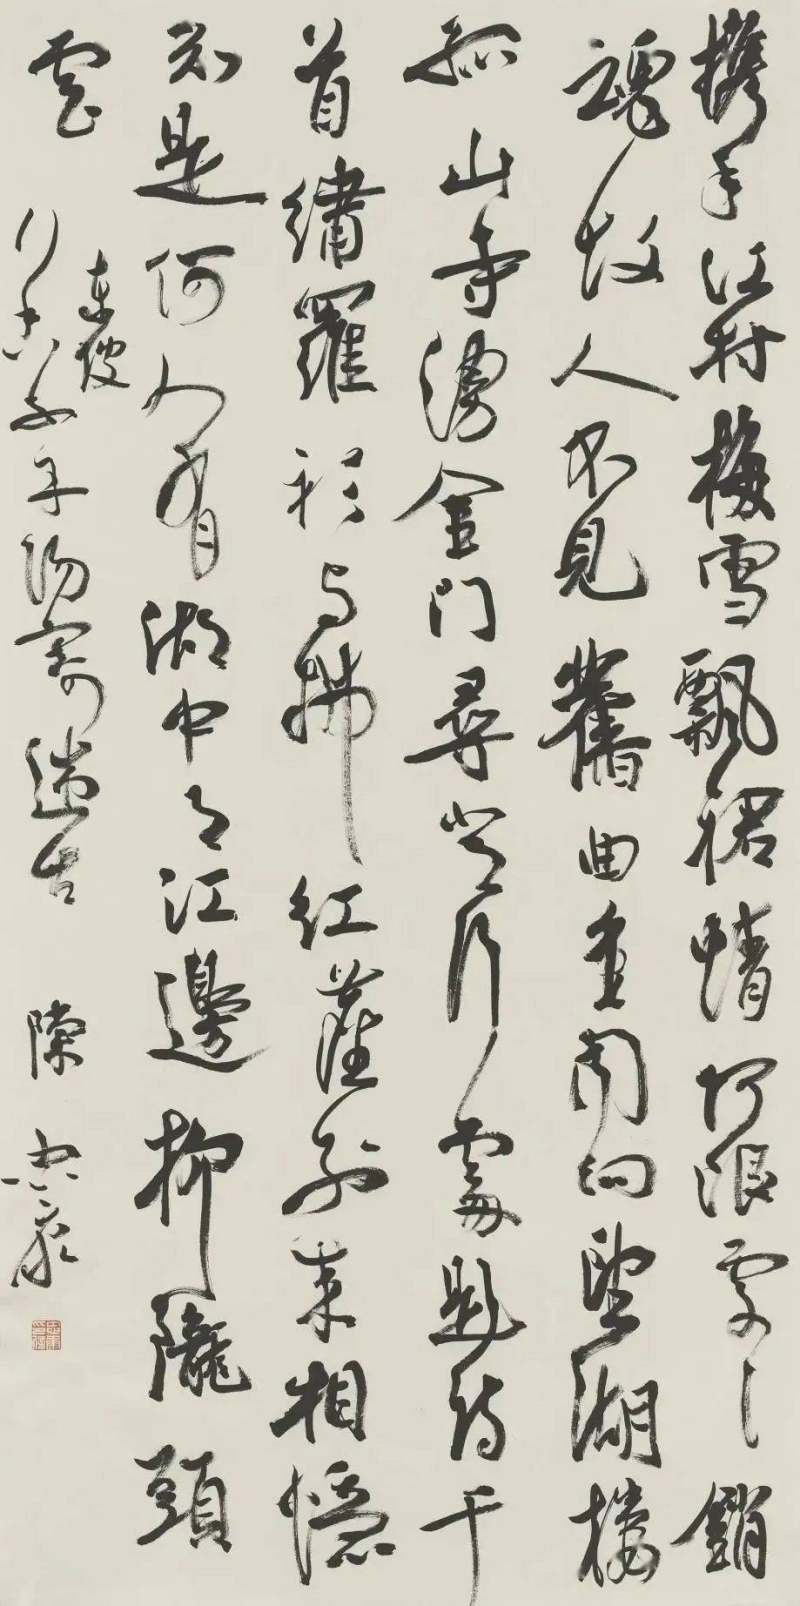 攜手江村梅雪飄裙情何限處〻銷
魂故人不見舊曲重聞向望湖樓
孤山寺湧金門尋常行處題詩千
首繡羅衫與拂紅塵別來相憶
知是何人有湖中月江邊柳隴頭
雲
東坡
行香子丹陽寄述古 陳忠康